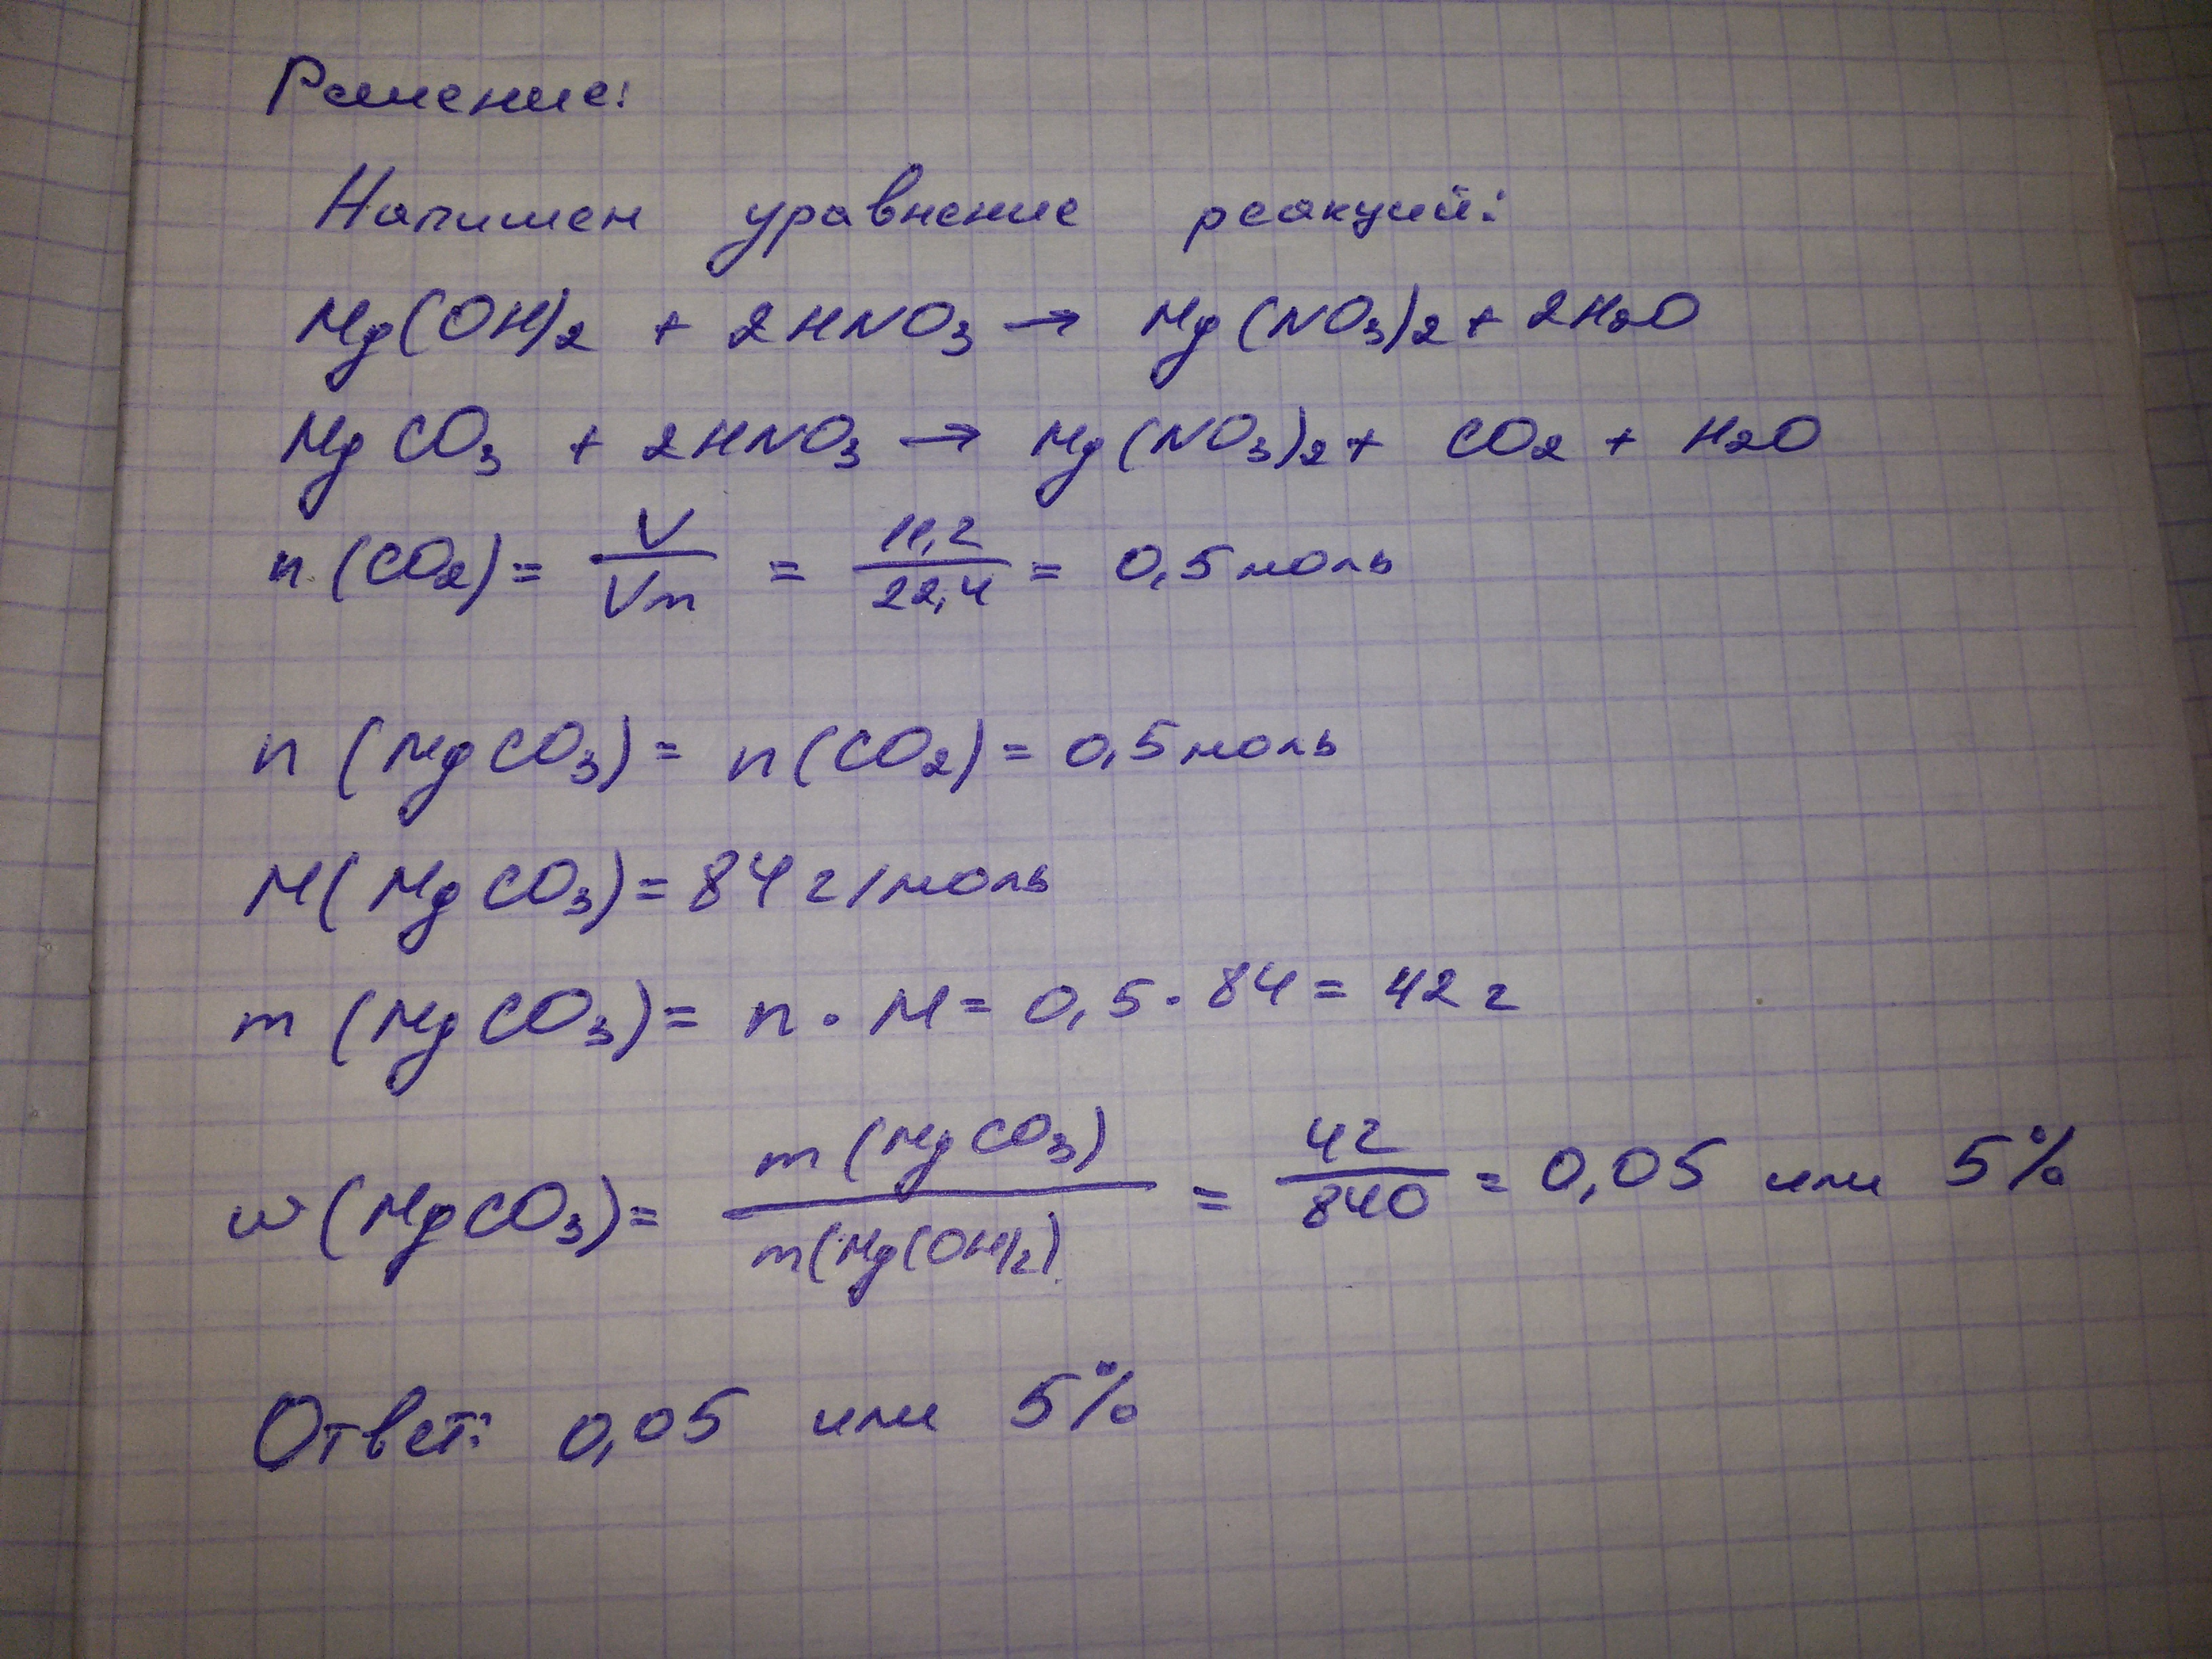 Решение:
Напишем уравнение реакций:
Mg(OH)2 + 2HNO3 → Mg(NO3)2 + 2H2O
MgCO3 + 2HNO3 → Mg(NO3)2 + CO2 + H2O
n(CO2) = V/Vm = 11,2/22,4 = 0,5 моль
n(MgCO3) = n(CO2) = 0,5 моль
M(MgCO3) = 84 г/моль
m(MgCO3) = n · M = 0,5 · 84 = 42 г
w(MgCO3) = m(MgCO3)/m(Mg(OH)2) = 42/840 = 0,05 или 5%
Ответ: 0,05 или 5%